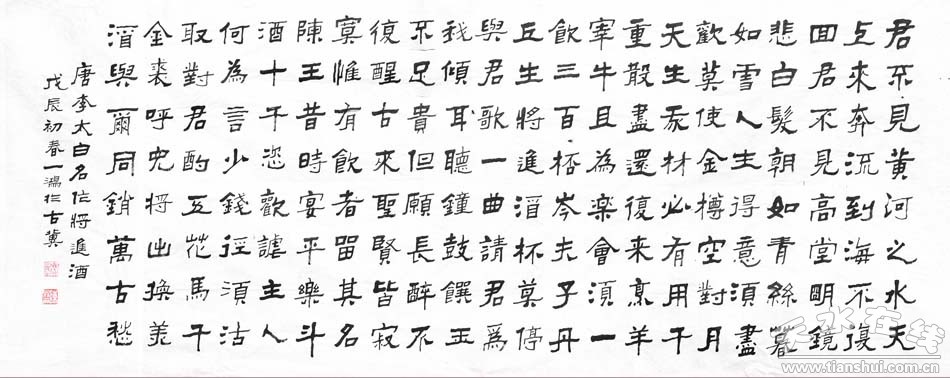 君不見黃河之水天
上來奔流到海不復
回君不見高堂明鏡
悲白髮朝如青絲暮
如雪人生得意須盡
歡莫使金樽空對月
天生我材必有用千
重散盡還復來烹羊
宰牛且為樂會須一
飲三百桮岑夫子丹
丘生將進酒杯莫停
與君歌一曲請君為
我傾耳聽鐘鼓饌玉
不足貴但願長醉不
復醒古來聖賢皆寂
寞惟有飲者留其名
陳王昔時宴平樂斗
酒十千恣歡謔主人
何為言少錢徑須沽
取對君酌五花馬千
金裘呼兒將出換美
酒與爾同銷萬古愁
唐李太白名作將進酒
戊辰初春一鴻於古冀
天水在线
www.tianshui.com.cn